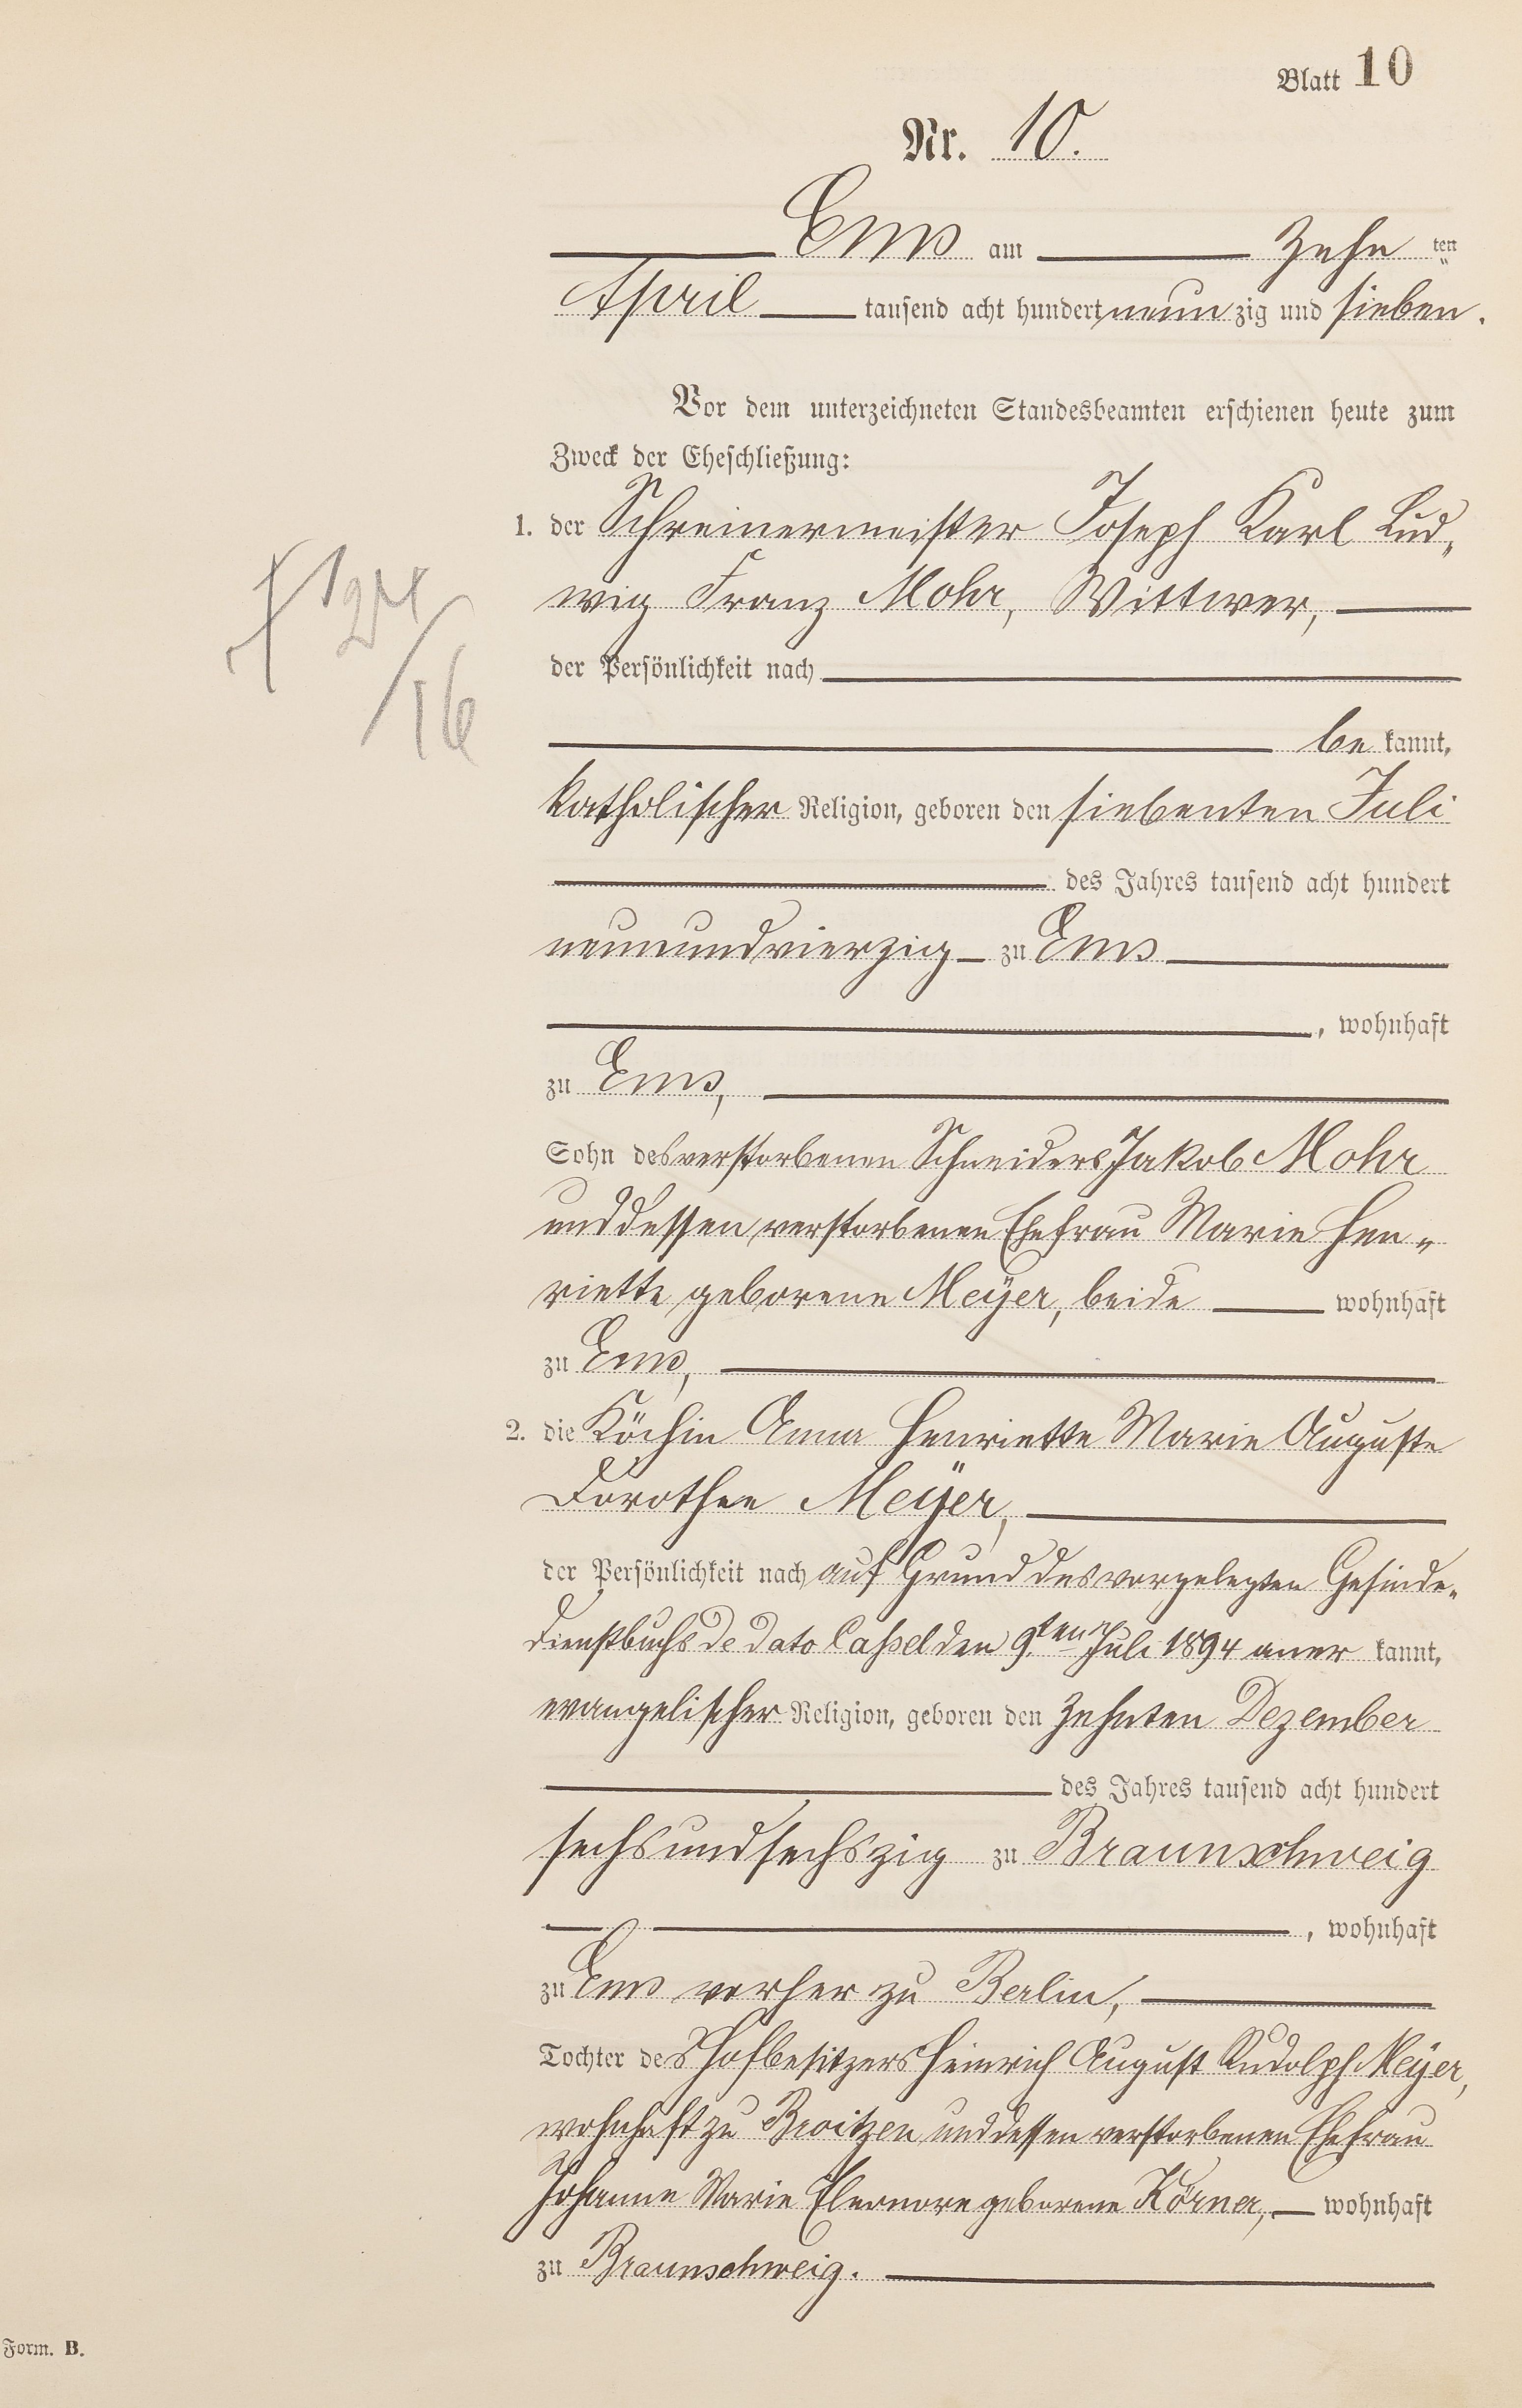 Blatt 10
Nr. 10.
Ems am zehn ten
April tausend acht hundert neun zig und sieben.
Vor dem unterzeichneten Standesbeamten erschienen heute zum
Zweck der Eheschließung:
1. der Schreinermeister Joseph Karl Lud„
wig Franz Mohr, Wittwer,
der Persönlichkeit nach
be kannt,
katholischer Religion, geboren den siebenten Juli
des Jahres tausend acht hundert
neunundvierzig zu Ems
, wohnhaft
zu Ems,
Sohn des verstorbenen Schneiders Jakob Mohr
und dessen verstorbenen Ehefrau Marie Hen„
riette geborene Meÿer, beide wohnhaft
zu Ems,
2. die Köchin Anna Henriette Marie Auguste
Dorothee Meÿer,
der Persönlichkeit nach auf Grund des vorgelegten Gesinde„
dienstbuchs de dato Cassel den 9ten Juli 1894 aner kannt,
evangelischer Religion, geboren den zehnten Dezember
des Jahres tausend acht hundert
sechsundsechszig zu Braunschweig
, wohnhaft
zu Ems vorher zu Berlin,
Tochter des Hofbesitzers Heinrich August Rudolph Meÿer,
wohnhaft zu Broitzen und dessen verstorbenen Ehefrau
Johanne Marie Eleonore geborene Körner, wohnhaft
zu Braunschweig.
Form. B.